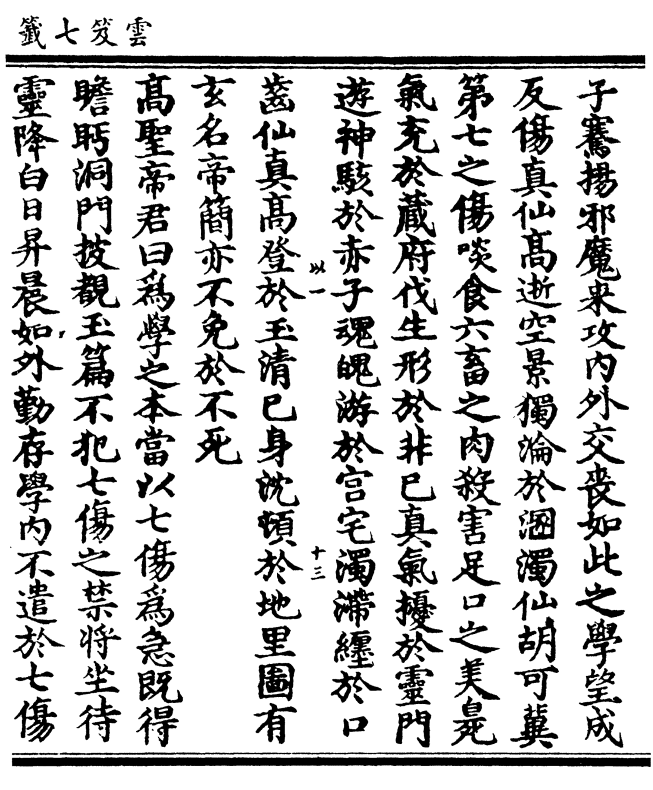 雲笈七籤
子騫揚邪魔来攻内外交喪如此之學望成
反傷真仙髙逝空景獨淪於溷濁仙胡可冀
第七之傷啖食六畜之肉殺害足口之美臰
氣充於藏府伐生形於非已真氣擾於靈門
遊神駭於赤子魂魄游於宫宅濁滯纒於口
以一
十三
齒仙真髙登於玉清已身沈頓於地里圖有
玄名帝簡亦不免於不死
髙聖帝君曰爲學之本當以七傷爲急既得
瞻眄洞門披觀玉篇不犯七傷之禁将坐待
靈降白日昇晨如外勤存學内不遣於七傷